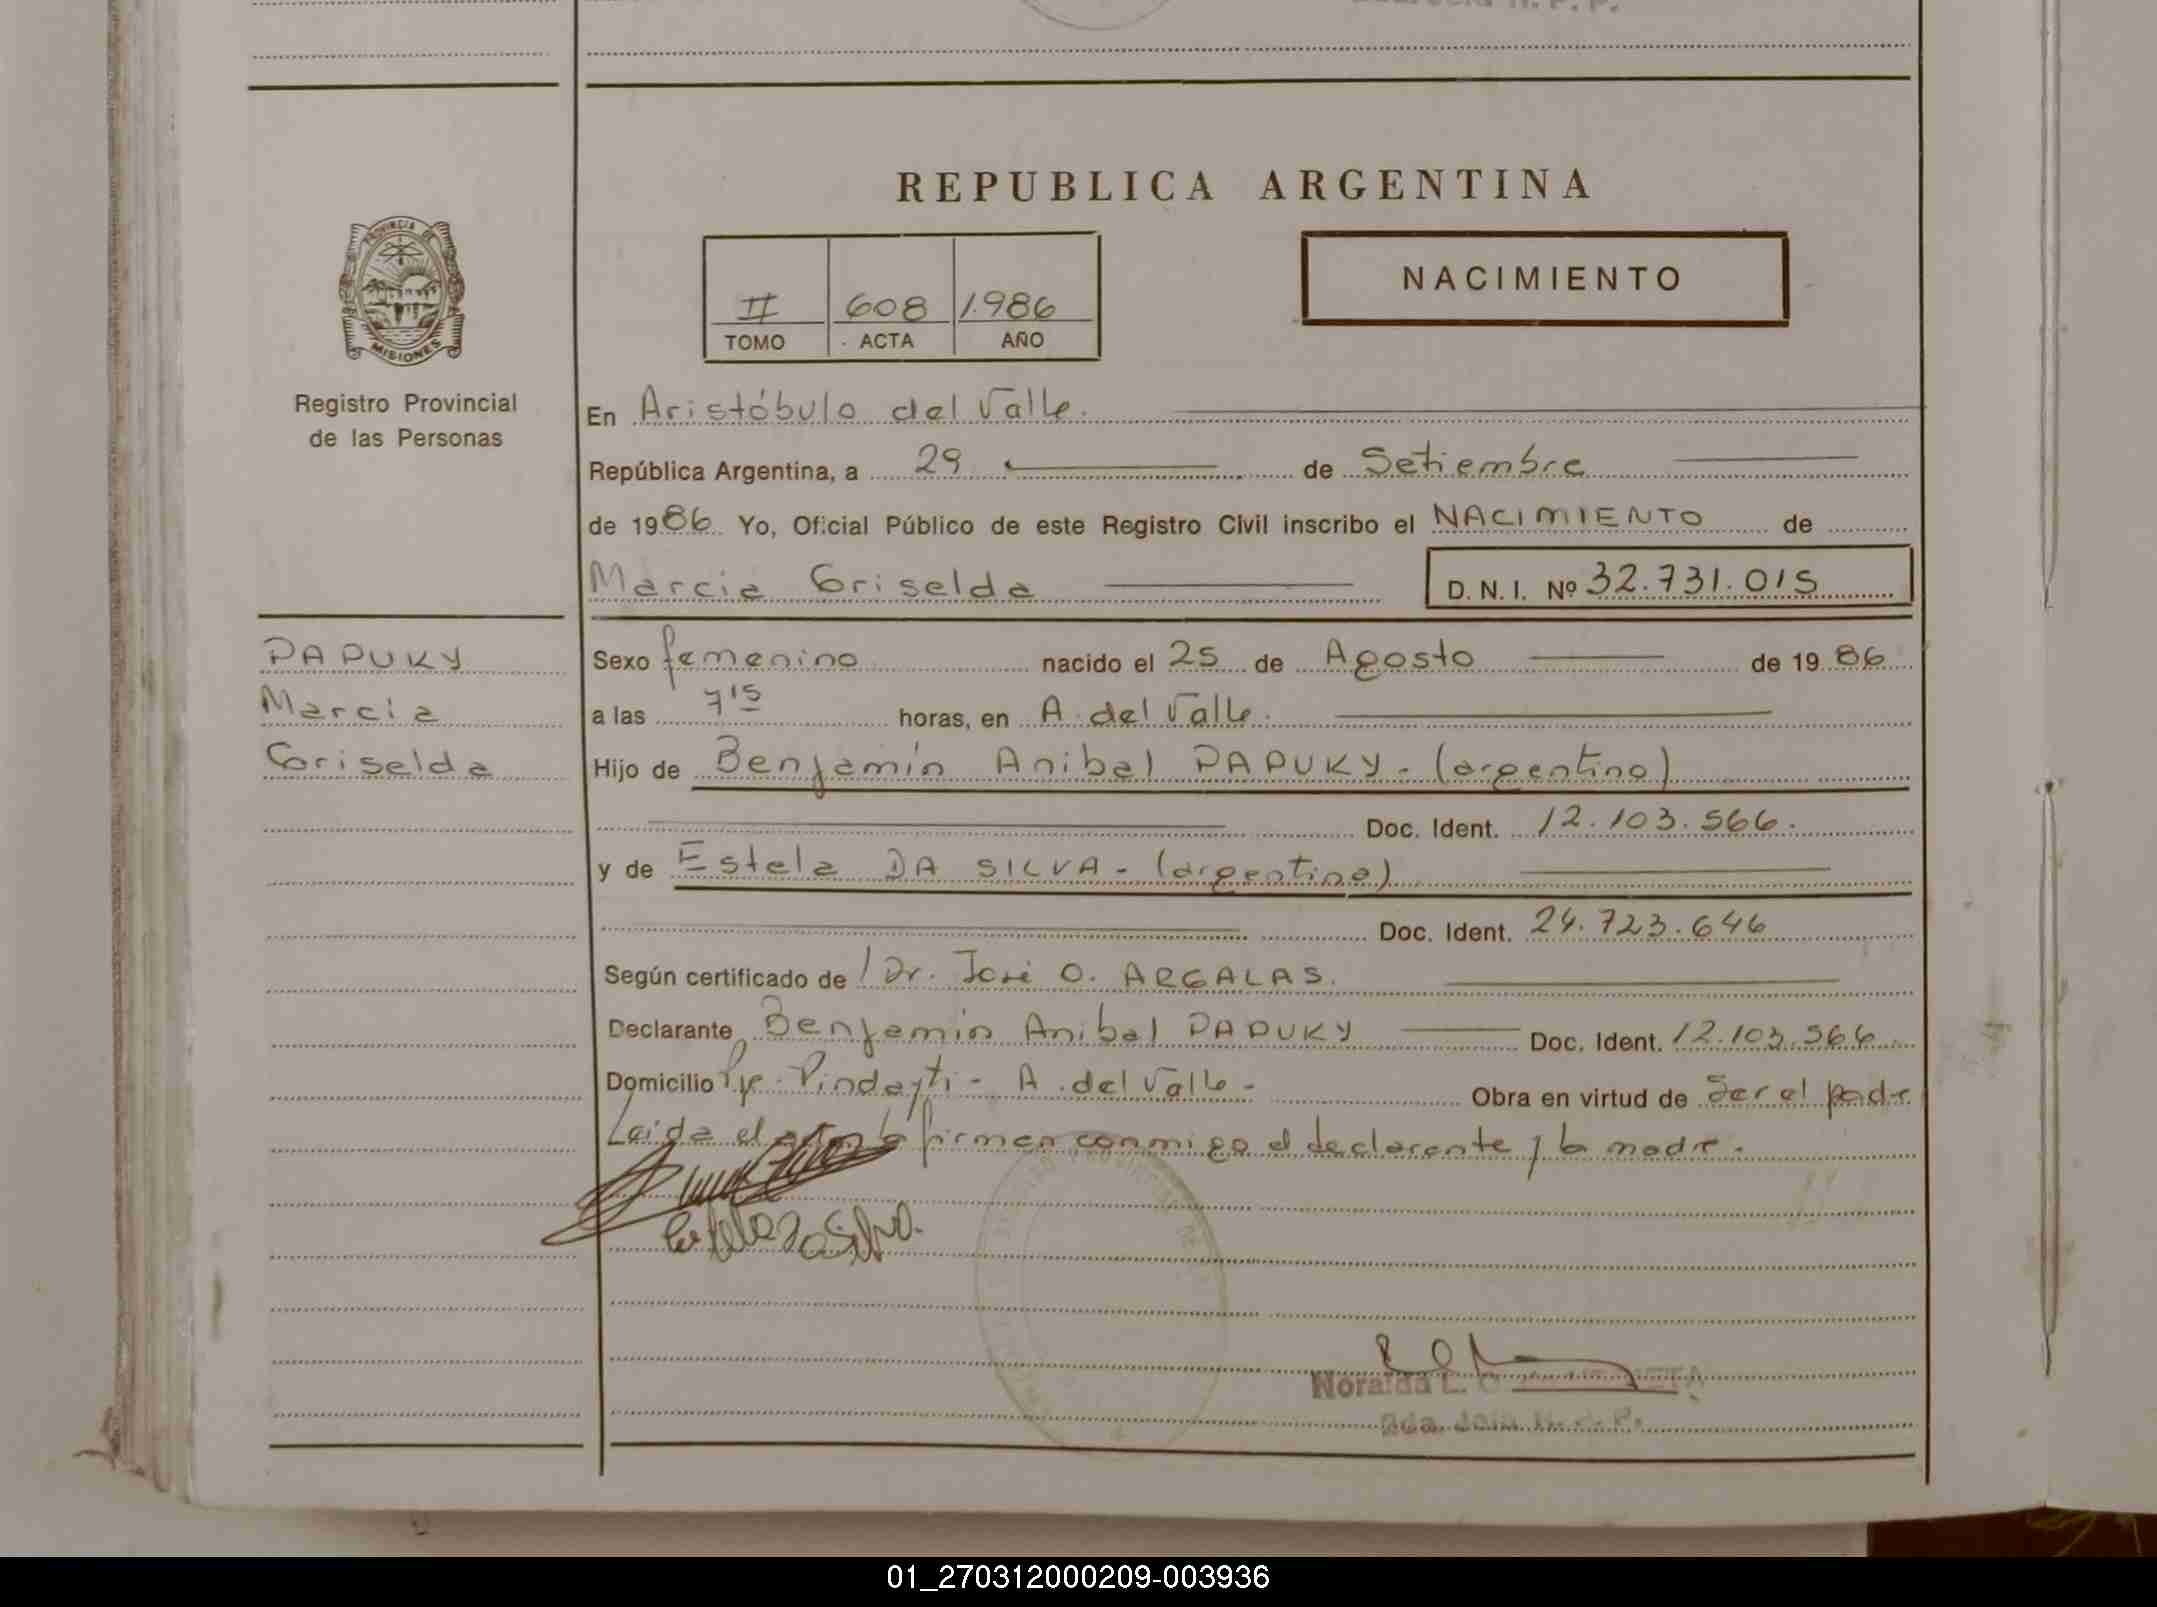 REPUBLICA ARGENTINA
PROVINCIA DE
MISIONES
Registro Provincial
de las Personas
II 608 1.986
TOMO ACTA AÑO
NACIMIENTO
En Aristóbulo del Valle.
República Argentina, a 29 de Setiembre
de 1986 Yo, Oficial Público de este Registro Civil inscribo el NACIMIENTO de
Marcia Griselda D. N. I. Nº 32.731.015
PAPUKY
Marcia
Griselda
Sexo femenino nacido el 25 de Agosto de 1986
a las 7 15 horas, en A. del Valle.
Hijo de Benjamín Anibal PAPUKY - (argentino)
Doc. Ident. 12.103.566.
y de Estela DA SILVA - (argentina)
Doc. Ident. 24.723.646
Según certificado de Dr. José O. ARGALAS.
Declarante Benjamín Anibal PAPUKY Doc. Ident. 12.103.566
Domicilio Pje. Pindayti - A. del Valle - Obra en virtud de Ser el padre
Leída el acta la firman conmigo el declarante y la madre.
Estela Da Silva.
Noraida L.
2da. Jefa R. P. P.
01_270312000209-003936